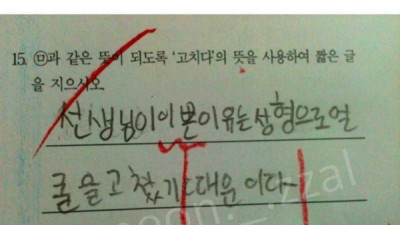 15. ㉤과 같은 뜻이 되도록 '고치다'의 뜻을 사용하여 짧은 글
을 지으시오.
선생님이 이쁜이유는 성형으로얼
굴을고쳤기때문이다